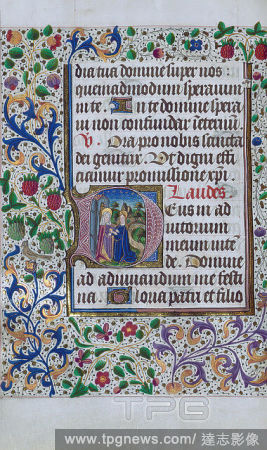 dia tua domine super nos
quemadmodum speravim
in te. In te domine spera
vi non confundar ineternu
V. Ora pro nobis sancta
dei genitrix. Ut digni effi
ciamur promissione xpi.
Laudes
Deus in ad
iutorium
meum inte
de. Domine
ad adiuvandum me festi
na. Gloria patri et filio
TPG
www.tpgnews.com / 達志影像